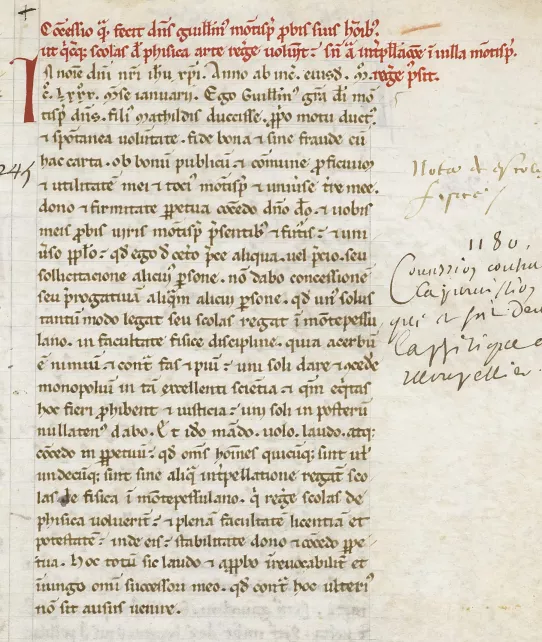 Cōcessio q̄ fecit dn̄s guill̄m' mōtisp̄ ꝓbis suis hoīb'.
ut q̄cq; scolas d̄ phisica arte reḡe voluȳt ⁊ sn̄ ā int̄pllac̄ōe ī villa mōtisp̄.
reḡe p̄sīt.
In noīe dn̄i nr̄i ihū xp̄i. Anno ab īnc̄. eiusd. M.
C. LXXX. Mse ianuarii. Ego Guill̄m' gr̄a dī mō
tisp̄ dn̄s. fili' Mathildis duccisse. ꝓpo motu duct'
⁊ spontanea voluntate. fide bona ⁊ sine fraude cū
hac carta. ob bonū publicū ⁊ cōmune ꝓficuum
⁊ utilitatē mei ⁊ toci' mōtisp̄ ⁊ uniūse t̄re mee.
dono ⁊ firmitate ꝑpetua cōcedo dn̄o dō. ⁊ vobis
meis ꝓbis viris mōtisp̄ p̄sentib' ⁊ fut̄is ⁊ uni
ūso pplō. qd ego d cet̄o p̄ce aliqua. vel p̄cio. seu
sollicitacione alicui' ꝑsone. nō dabo concessionē
seu p̄rogativā aliq̄m alicui ꝑsone. qd un' solus
tantūmodo legat seu scolas regat ī mōtepessu
lano. in facultate fisice discipline. quia acerbū
ē nimiū ⁊ cont̄ fas ⁊ piū uni soli dare ⁊ c̄cede
monopoliū in tā excellenti sciētia ⁊ qm̄ eq̄tas
hoc fieri ꝓhibent ⁊ iusticia uni soli in posterū
nullaten' dabo. Et ido mādo. volo. laudo. atq;
cōcedo in ꝑpetuū qd om̄s hoīnes quicūq; sint ul'
undecūq; sint sine aliq̄ int̄pellatione regāt sco
las de fisica ī mōtepessulano. q̄ reḡe scolas de
phisica voluerīt ⁊ plenā facultatē licentiā et
potestatē inde eis stabilitate dono ⁊ cōcedo ꝑpe
tua. Hoc totū sic laudo ⁊ app̄bo irrevocabilit̄ et
iniungo omī successori meo. qd cont̄ hoc ulteri'
nō sit ausus venire.
245
Nota de escola
fisice
1180.